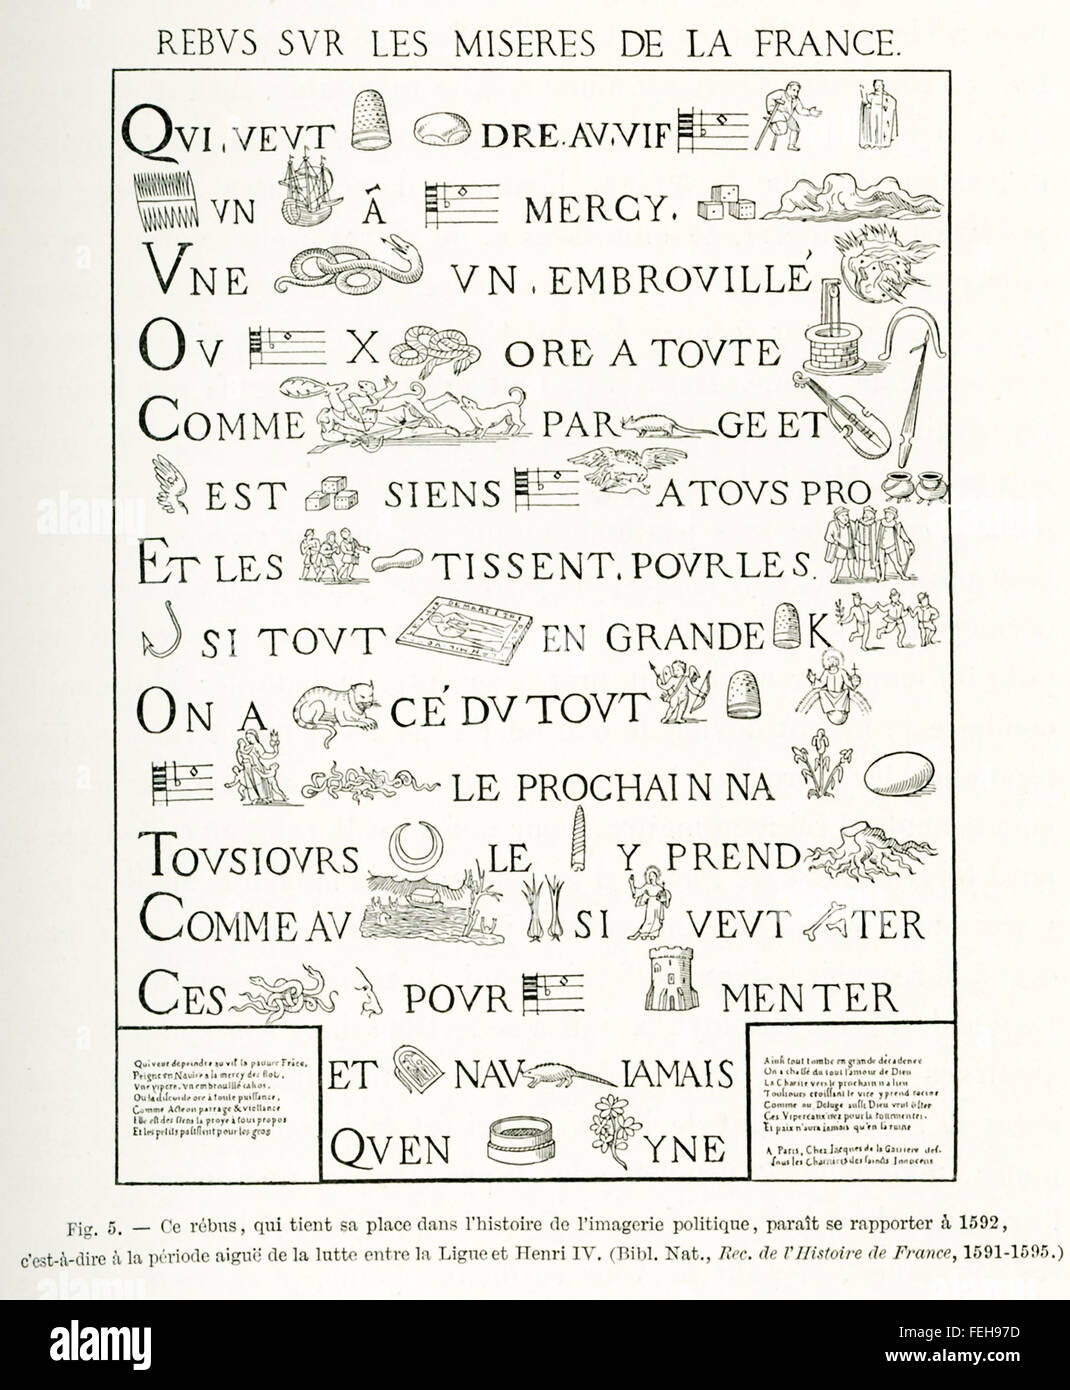 REBVS SVR LES MISERES DE LA FRANCE.
QVI, VEVT DRE. AV. VIF
VN Á MERCY.
VNE VN. EMBROVILLÉ
OV X ORE A TOVTE
COMME PAR GE ET
EST SIENS A TOVS PRO
ET LES TISSENT. POVR LES.
SI TOVT EN GRANDE K
ON A CÉ DV TOVT
LE PROCHAIN NA
TOVSIOVRS LE Y PREND
COMME AV SI VEVT TER
CES POVR MENTER
ET NAV IAMAIS
QVEN YNE
Qui veut depeindre au vif la pauure Frāce,
Peigne vn Nauire a la mercy des flots,
Vne vipere, vn embrouillé cahos,
Ou la discorde ore à toute puissance,
Comme Acteon partage & viollance
Elle est des siens la proye a tous propos
Et les petits patissent pour les gros
Ainsi tout tombe en grande décadence
On a chassé du tout l'amour de Dieu
La Charité vers le prochain n a lieu
Tousiours croissant le vice y prend racine
Comme au Deluge aussi Dieu veut oster
Ces Vipereaux nez pour la tourmenter,
Et paix n'aura iamais qu'en la ruine
A Paris, Chez Jacques de la
sous les Charniers des saincts Innocens
Fig. 5. — Ce rébus, qui tient sa place dans l'histoire de l'imagerie politique, paraît se rapporter à 1592,
c'est-à-dire à la période aiguë de la lutte entre la Ligue et Henri IV. (Bibl. Nat., Rec. de l'Histoire de France, 1591-1595.)
alamy
Image ID: FEH97D
www.alamy.com